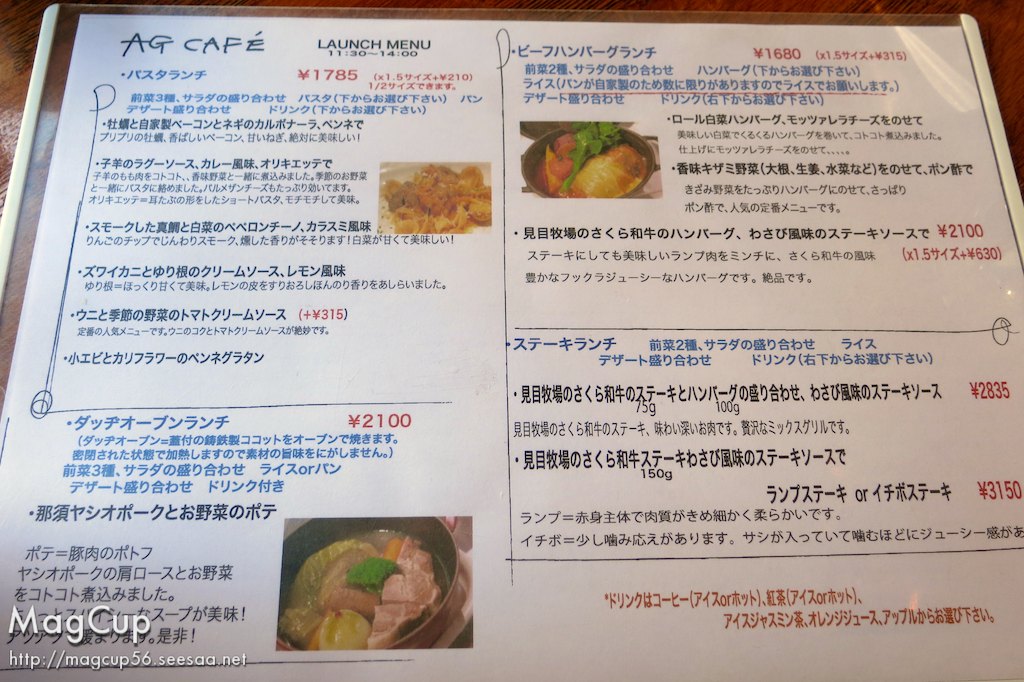 AG CAFÉ
LAUNCH MENU
11:30〜14:00
・パスタランチ ¥1785 (x1.5サイズ+¥210)
1/2サイズできます。
前菜3種、サラダの盛り合わせ パスタ(下からお選び下さい) パン
デザート盛り合わせ ドリンク(下からお選び下さい)
・牡蠣と自家製ベーコンとネギのカルボナーラ、ペンネで
プリプリの牡蠣、香ばしいベーコン、甘いねぎ、絶対に美味しい!
・子羊のラグーソース、カレー風味、オリキエッテで
子羊のもも肉をコトコト、、香味野菜と一緒に煮込みました。季節のお野菜
と一緒にパスタに絡めました。パルメザンチーズもたっぷり効いてます。
オリキエッテ=耳たぶの形をしたショートパスタ、モチモチして美味。
・スモークした真鯛と白菜のペペロンチーノ、カラスミ風味
りんごのチップでじんわりスモーク、燻した香りがそそります!白菜が甘くて美味しい!
・ズワイカニとゆり根のクリームソース、レモン風味
ゆり根=ほっくり甘くて美味。レモンの皮をすりおろしほんのり香りをあしらいました。
・ウニと季節の野菜のトマトクリームソース (+¥315)
定番の人気メニューです。ウニのコクとトマトクリームソースが絶妙です。
・小エビとカリフラワーのペンネグラタン
・ダッヂオーブンランチ ¥2100
(ダッヂオーブン=蓋付の鋳鉄製ココットをオーブンで焼きます。
密閉された状態で加熱しますので素材の旨味をにがしません。)
前菜3種、サラダの盛り合わせ ライスorパン
デザート盛り合わせ ドリンク付き
・那須ヤシオポークとお野菜のポテ
ポテ=豚肉のポトフ
ヤシオポークの肩ロースとお野菜
をコトコト煮込みました。
なスープが美味!
ます。是非!
・ビーフハンバーグランチ ¥1680 (x1.5サイズ+¥315)
前菜2種、サラダの盛り合わせ ハンバーグ(下からお選び下さい)
ライス(パンが自家製のため数に限りがありますのでライスでお願いします。)
デザート盛り合わせ ドリンク(右下からお選び下さい)
・ロール白菜ハンバーグ、モッツァレラチーズをのせて
美味しい白菜でくるくるハンバーグを巻いて、コトコト煮込みました。
仕上げにモッツァレラチーズをのせて、、、、、。
・香味キザミ野菜(大根、生姜、水菜など)をのせて、ポン酢で
きざみ野菜をたっぷりハンバーグにのせて、さっぱり
ポン酢で、人気の定番メニューです。
・見目牧場のさくら和牛のハンバーグ、わさび風味のステーキソースで ¥2100
(x1.5サイズ+¥630)
ステーキにしても美味しいランプ肉をミンチに、さくら和牛の風味
豊かなフックラジューシーなハンバーグです。絶品です。
・ステーキランチ 前菜2種、サラダの盛り合わせ ライス
デザート盛り合わせ ドリンク(右下からお選び下さい)
・見目牧場のさくら和牛のステーキとハンバーグの盛り合わせ、わさび風味のステーキソース ¥2835
75g 100g
見目牧場のさくら和牛のステーキ、味わい深いお肉です。贅沢なミックスグリルです。
・見目牧場のさくら和牛ステーキわさび風味のステーキソースで
150g
ランプステーキ or イチボステーキ ¥3150
ランプ=赤身主体で肉質がきめ細かく柔らかいです。
イチボ=少し噛み応えがあります。サシが入っていて噛むほどにジューシー感があ
*ドリンクはコーヒー(アイスorホット)、紅茶(アイスorホット)、
アイスジャスミン茶、オレンジジュース、アップルからお選び下さい。
MagCup
http://magcup56.seesaa.net